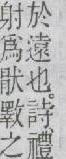 於遠也。詩禮
射爲猒斁之